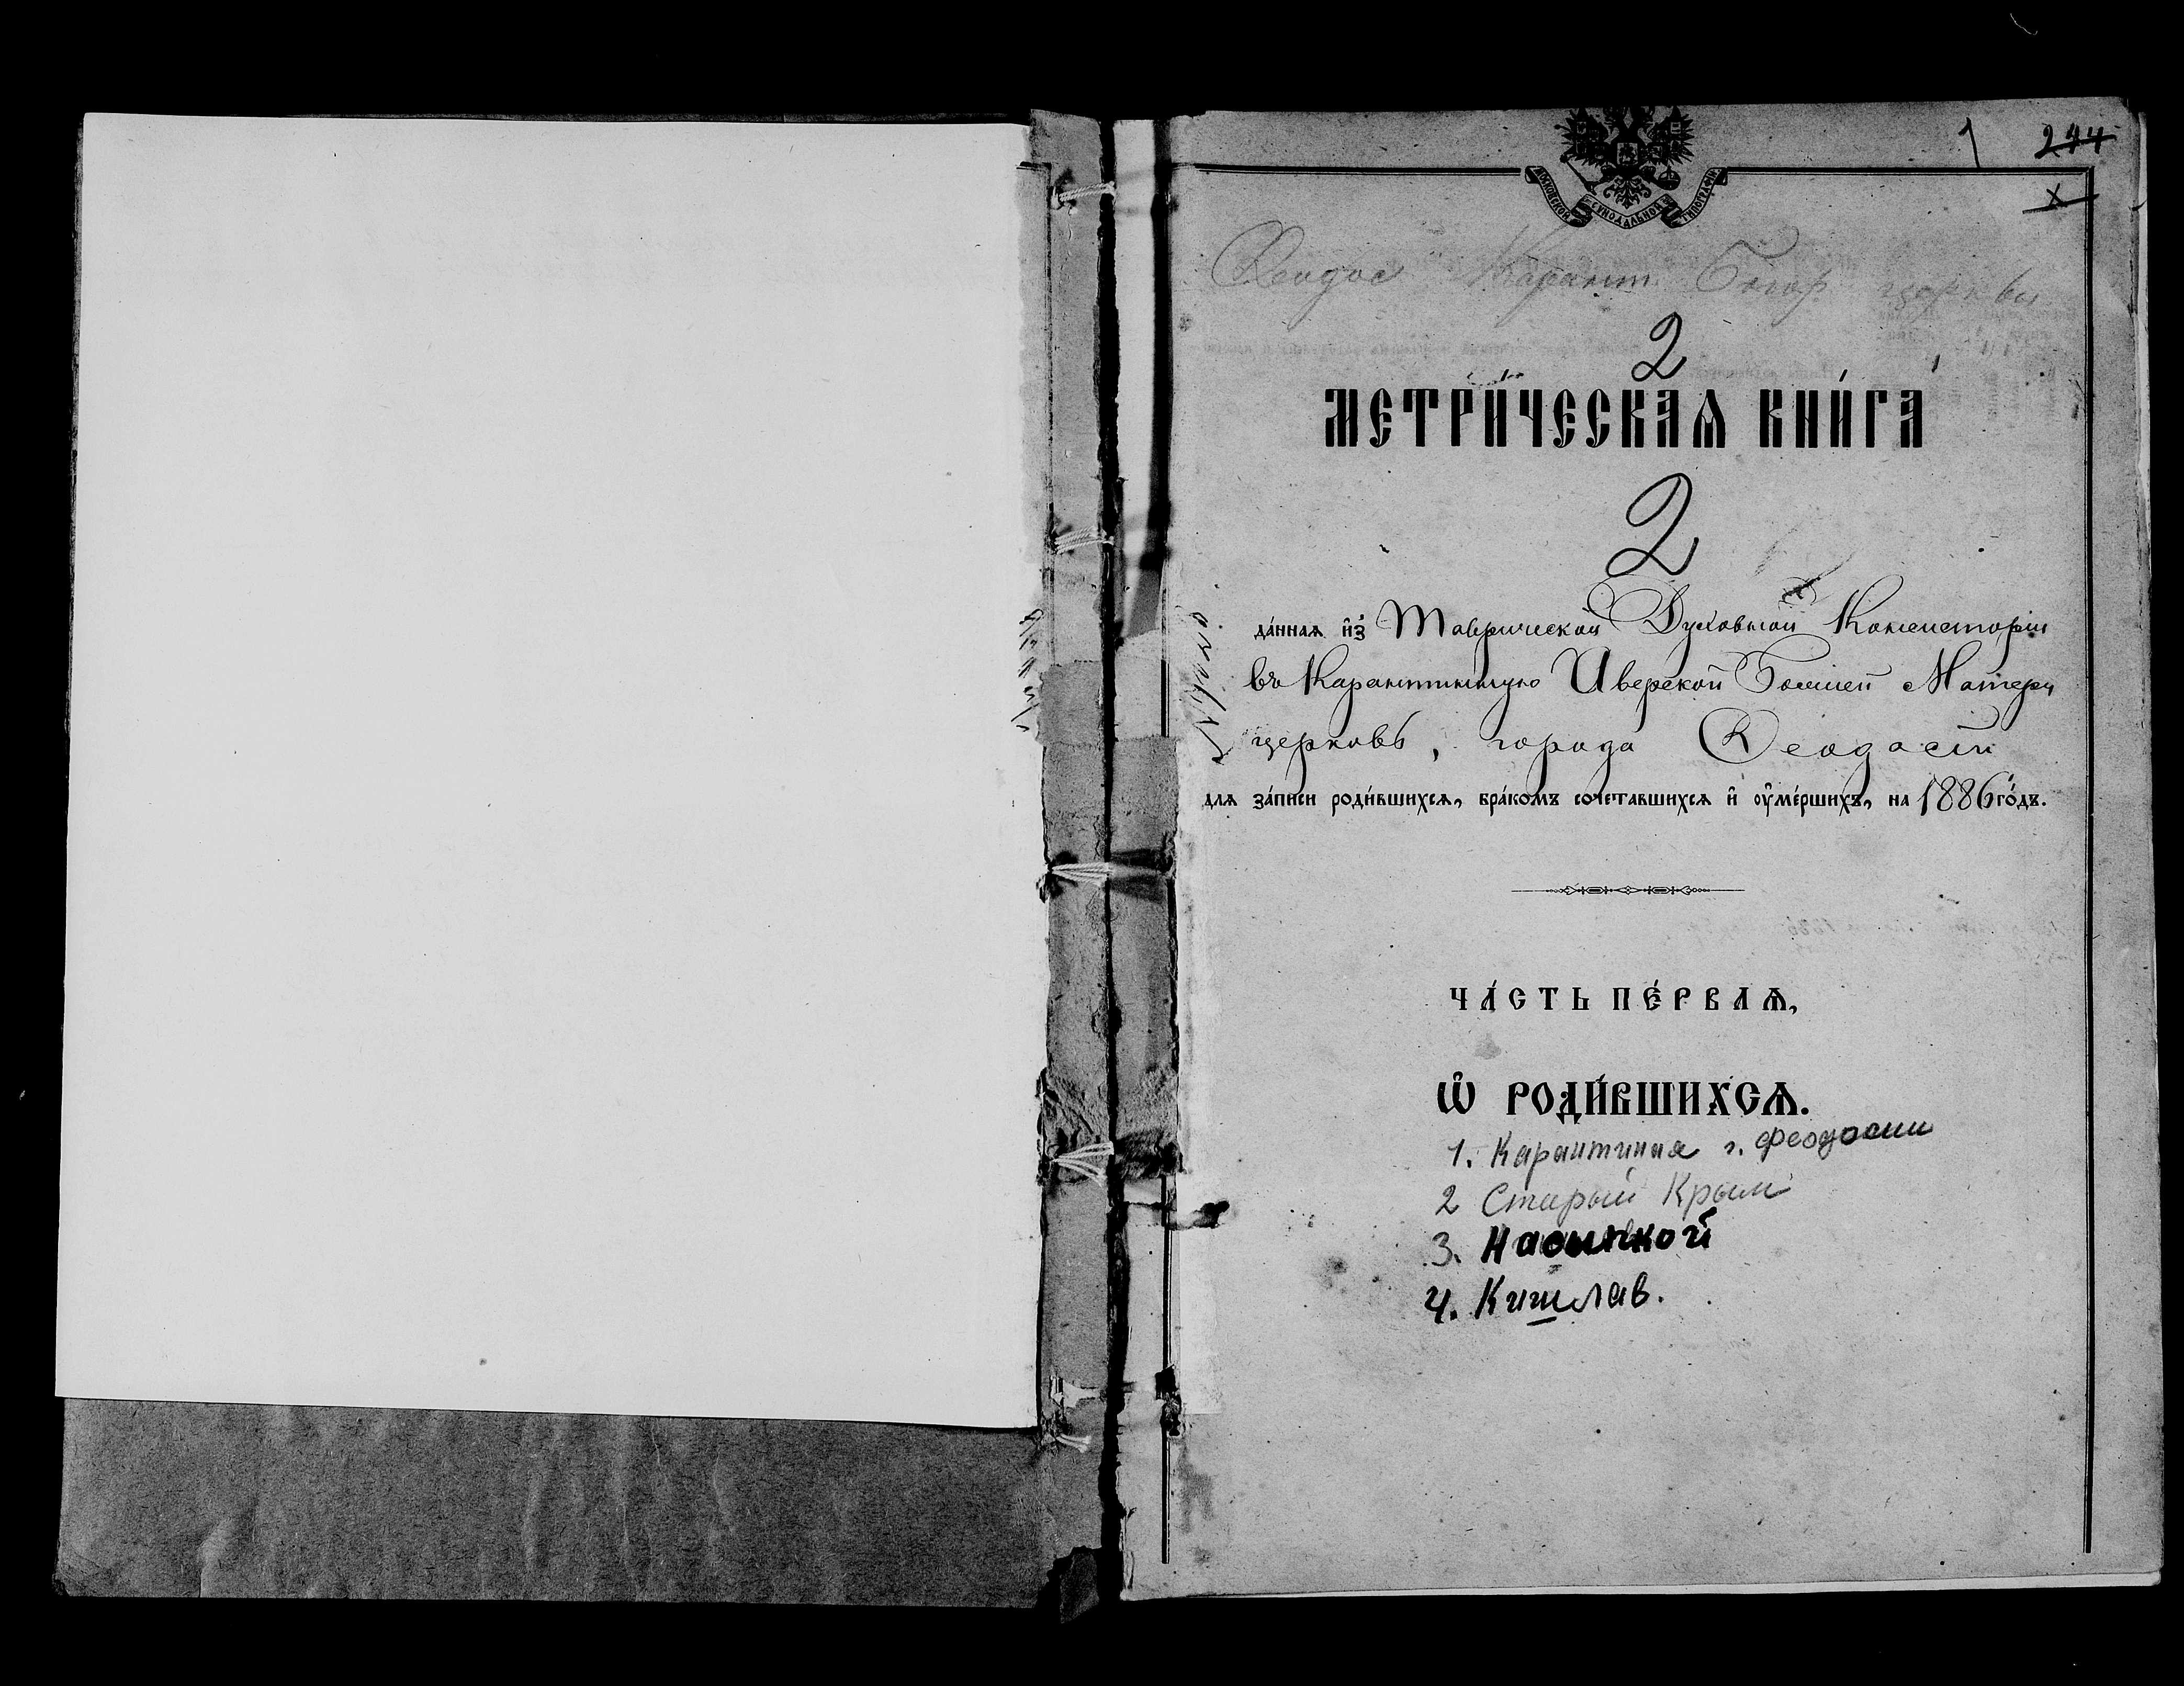 1 244
х
МОСКОВСКОЙ СѴНОДАЛЬНОЙ ТИПОГРАФІИ
Ѳеодос Карант. Богор церкви
2
МЕТРИ́ЧЕСКАѦ КНИ́ГА
2
да́ннаѧ и҆з̾ Таврической Духовной Консисторіи
въ Карантинную Иверской Божией Матери
церковь, города Ѳеодосіи
длѧ за́писи роди́вшихсѧ, бра́комъ сочета́вшихсѧ и҆ ᲂу҆ме́ршихъ, на 1886 го́дъ.
ЧА́СТЬ ПЕ́РВАѦ,
Ѡ҆ РОДИ́ВШИХСѦ.
1. Карантиная г. Феодосии
2 Старый Крым
3. Насыпкой
4. Кишлав.